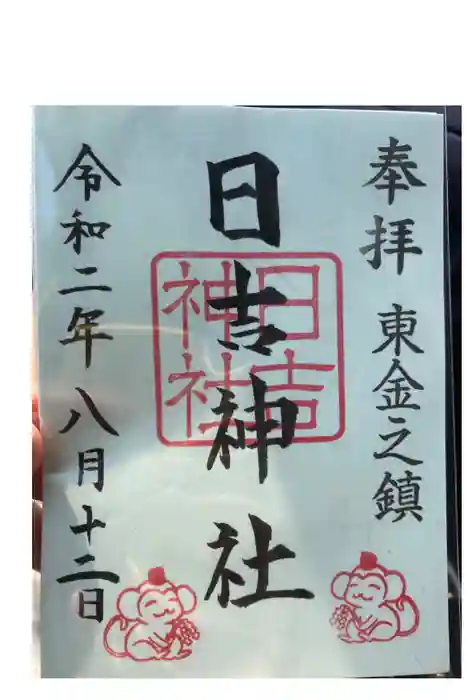 奉拝 東金之鎮
日吉神社
日吉
神社
令和二年八月十二日